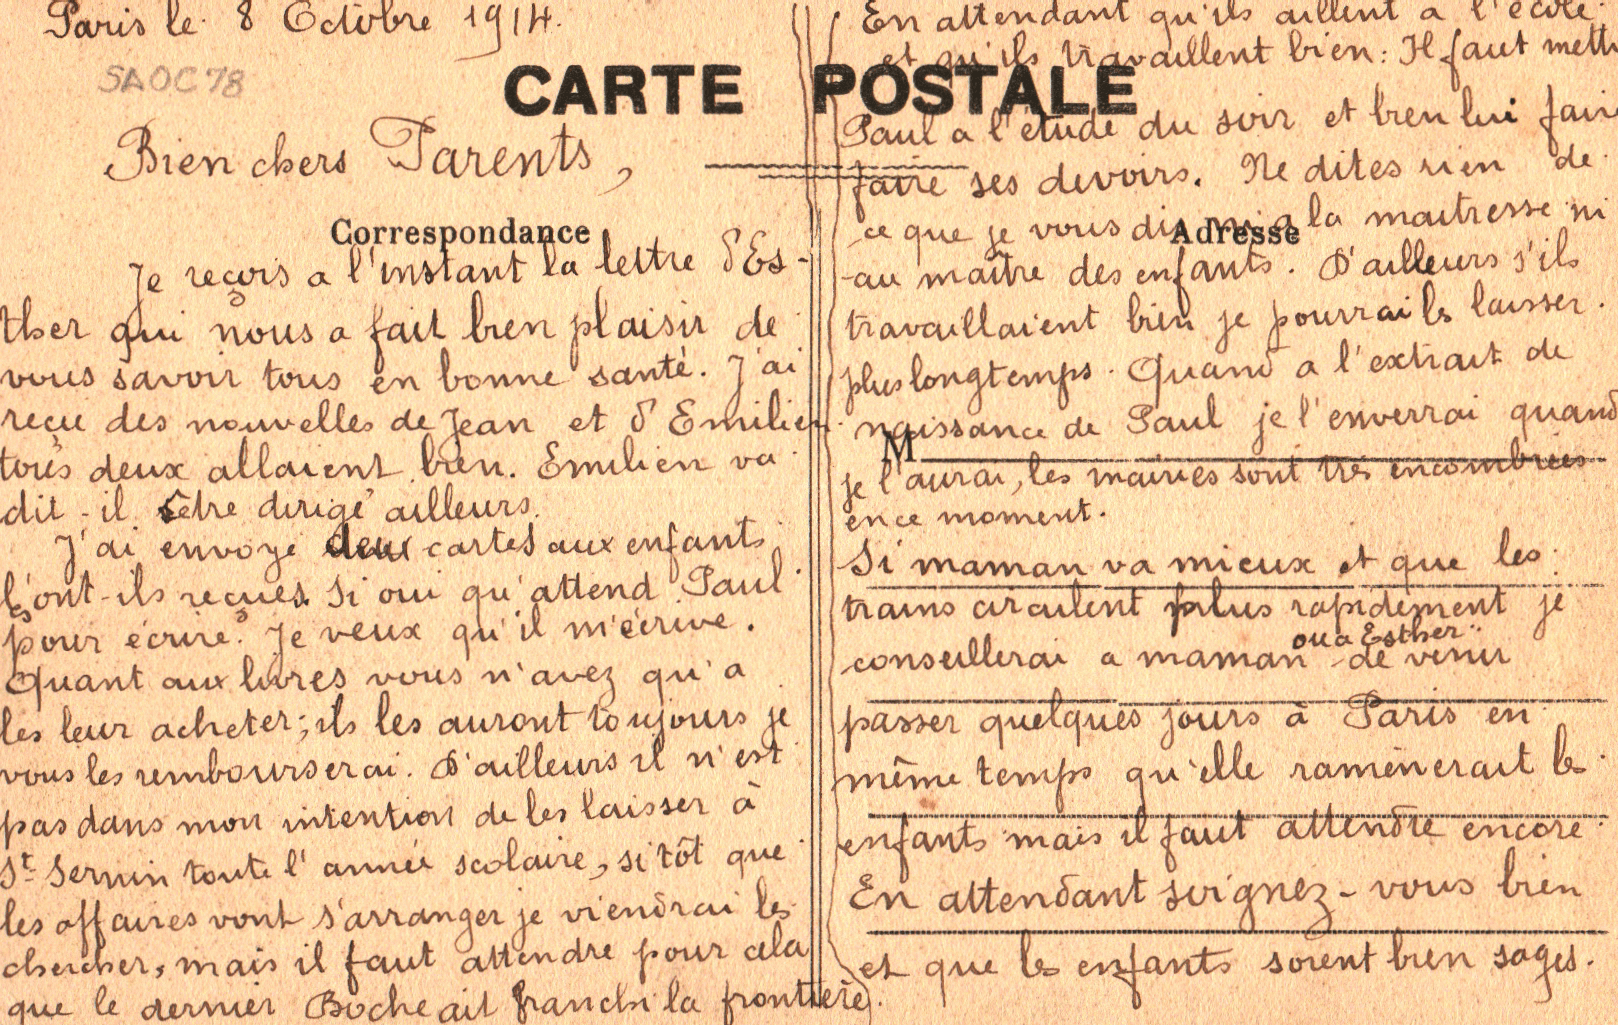 Paris le 8 Octobre 1914.
SAOC78
CARTE POSTALE
Bien chers Parents,
Correspondance
Je reçois a l'instant la lettre d'Es-
ther qui nous a fait bien plaisir de
vous savoir tous en bonne santé. J'ai
reçu des nouvelles de Jean et d'Emilien
tous deux allaient bien. Emilien va
dit-il être dirigé ailleurs.
J'ai envoyé deux cartes aux enfants
l'ont-ils reçues. Si oui qu'attend Paul
pour écrire? Je veux qu'il m'écrive.
Quant aux livres vous n'avez qu'a
les leur acheter; ils les auront toujours je
vous les rembourserai. D'ailleurs il n'est
pas dans mon intention de les laisser à
St Sernin toute l'année scolaire, sitôt que
les affaires vont s'arranger je viendrai les
chercher, mais il faut attendre pour cela
que le dernier Boche ait franchi la frontière.
En attendant qu'ils aillent a l'école
et qu'ils travaillent bien: Il faut mettr
Paul a l'étude du soir et bien lui faire
faire ses devoirs. Ne dites rien de
ce que je vous dis ni a la maitresse ni
Adresse
au maître des enfants. D'ailleurs s'ils
travaillaient bien je pourrai les laisser
plus longtemps. Quand a l'extrait de
naissance de Paul je l'enverrai quand
M
je l'aurai, les mairies sont très encombrées
en ce moment.
Si maman va mieux et que les
trains circulent plus rapidement je
ou a Esther
conseillerai a maman de venir
passer quelques jours à Paris en
même temps qu'elle ramènerait les
enfants mais il faut attendre encore
En attendant soignez-vous bien
et que les enfants soient bien sages.